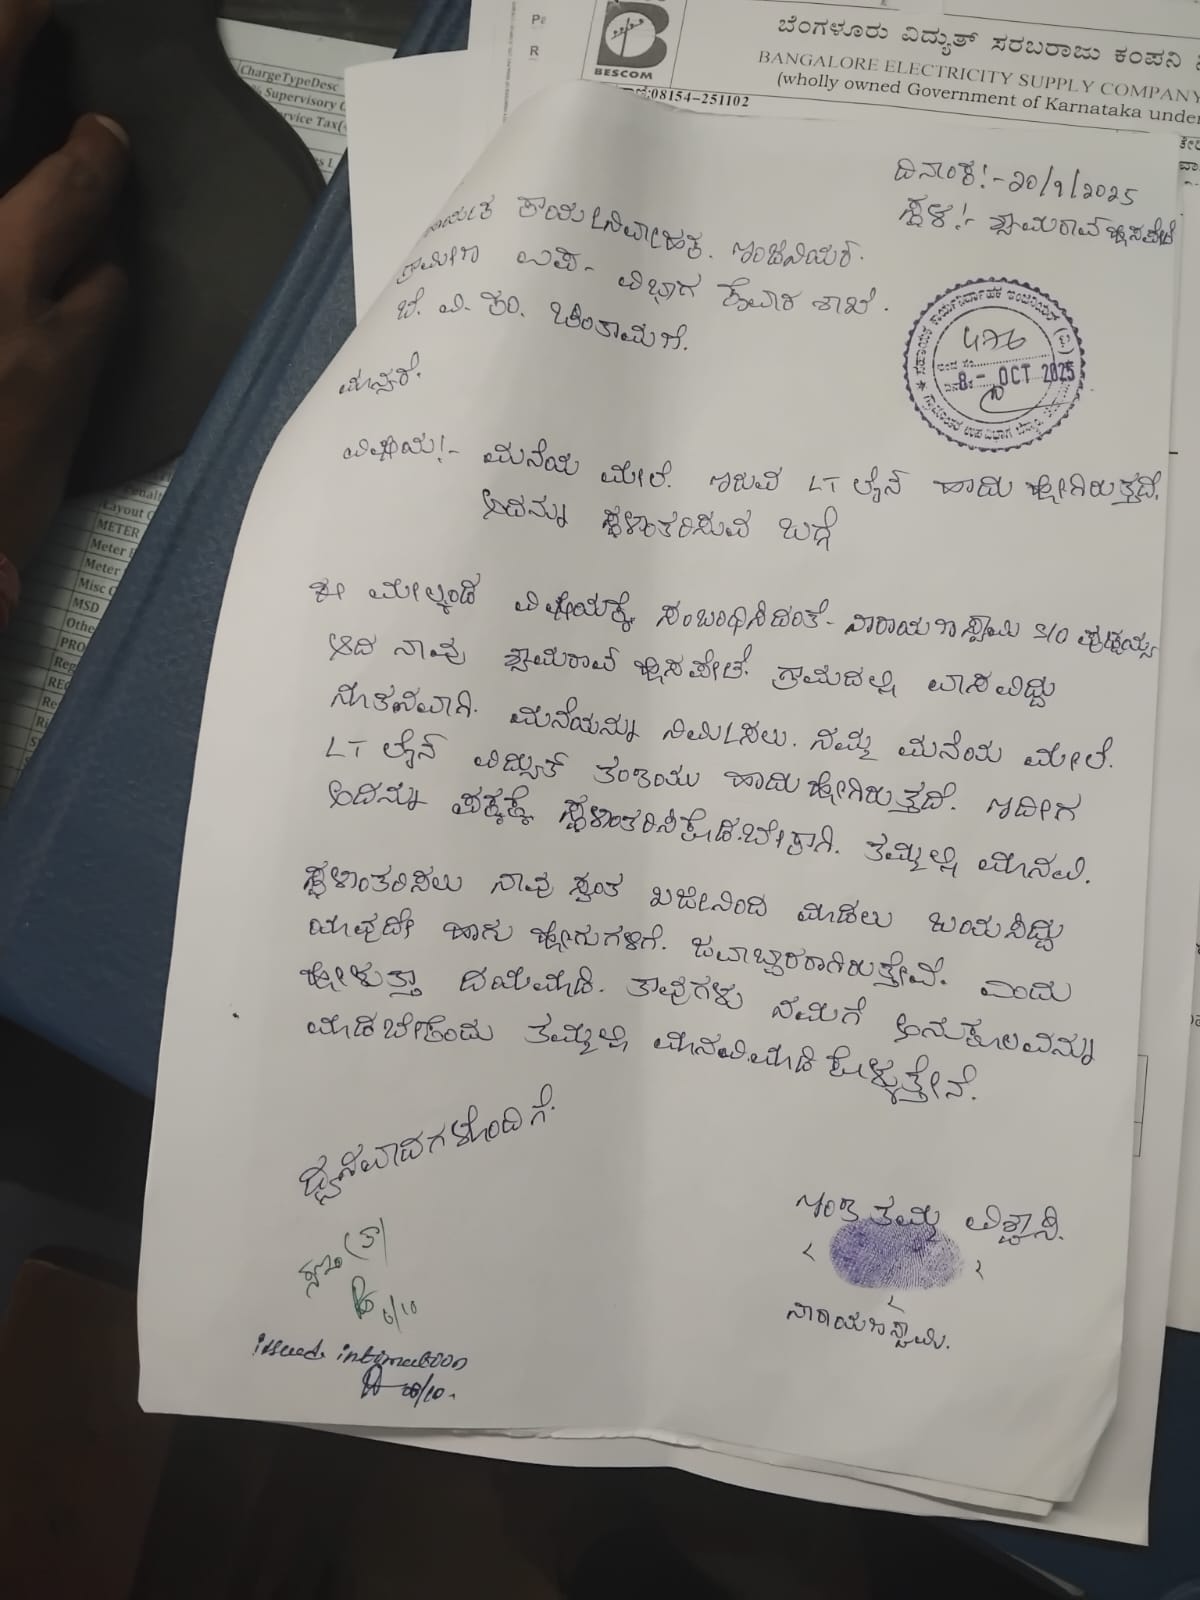 ChargeTypeDesc
Supervisory
rvice Tax(
Layout
METER
Meter
Meter
Misc
MSD
Othe
PRO
BESCOM
ಬೆಂಗಳೂರು ವಿದ್ಯುತ್ ಸರಬರಾಜು ಕಂಪನಿ
BANGALORE ELECTRICITY SUPPLY COMPANY
(wholly owned Government of Karnataka under
:08154-251102
ದಿನಾಂಕ:- 20/9/2025
ಸ್ಥಳ:- ಶ್ಯಾಮರಾವ್ ಹೊಸಪೇಟೆ
ಕಾರ್ಯನಿರ್ವಾಹಕ. ಇಂಜಿನಿಯರ್.
ಗ್ರಾಮೀಣ ಉಪ- ವಿಭಾಗ ಕೈವಾರ ಶಾಖೆ.
ಬೆ. ವಿ. ಕಂ. ಚಿಂತಾಮಣಿ.
ಮಾನ್ಯರೆ.
8 - OCT 2025
ವಿಷಯ:- ಮನೆಯ ಮೇಲೆ. ಇರುವ LT ಲೈನ್ ಹಾದು ಹೋಗಿರುತ್ತದೆ.
ಅದನ್ನು ಸ್ಥಳಾಂತರಿಸುವ ಬಗ್ಗೆ
ಈ ಮೇಲ್ಕಂಡ ವಿಷಯಕ್ಕೆ ಸಂಬಂಧಿಸಿದಂತೆ- ನಾರಾಯಣಸ್ವಾಮಿ S/O
ಆದ ನಾವು ಶ್ಯಾಮರಾವ್ ಹೊಸಪೇಟೆ. ಗ್ರಾಮದಲ್ಲಿ ವಾಸವಿದ್ದು
ನೂತನವಾಗಿ. ಮನೆಯನ್ನು ನಿರ್ಮಿಸಲು. ನಮ್ಮ ಮನೆಯ ಮೇಲೆ.
LT ಲೈನ್ ವಿದ್ಯುತ್ ತಂತಿಯು ಹಾದು ಹೋಗಿರುತ್ತದೆ. ಇದೀಗ
ಅದನ್ನು ಪಕ್ಕಕ್ಕೆ ಸ್ಥಳಾಂತರಿಸಿಕೊಡಬೇಕಾಗಿ. ತಮ್ಮಲ್ಲಿ ಮನವಿ.
ಸ್ಥಳಾಂತರಿಸಲು ನಾವು ಸ್ವಂತ ಖರ್ಚಿನಿಂದ ಮಾಡಲು ಬಯಸಿದ್ದು
ಯಾವುದೇ ಹಾಗು ಹೋಗುಗಳಿಗೆ. ಜವಾಬ್ದಾರರಾಗಿರುತ್ತೇವೆ. ಎಂದು
ಹೇಳುತ್ತಾ ದಯಮಾಡಿ. ತಾವುಗಳು ನಮಗೆ ಅನುಕೂಲವನ್ನು
ಮಾಡಬೇಕೆಂದು ತಮ್ಮಲ್ಲಿ ಮನವಿ ಮಾಡಿ ಕೊಳ್ಳುತ್ತೇನೆ.
ಧನ್ಯವಾದಗಳೊಂದಿಗೆ.
ಇಂತಿ ತಮ್ಮ ವಿಶ್ವಾಸಿ.
ನಾರಾಯಣಸ್ವಾಮಿ.
6/10
issued intimation
08/10.